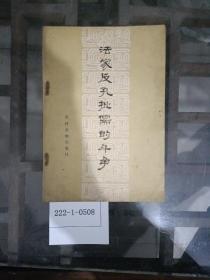 法家反孔批儒的斗争
222-1-0508